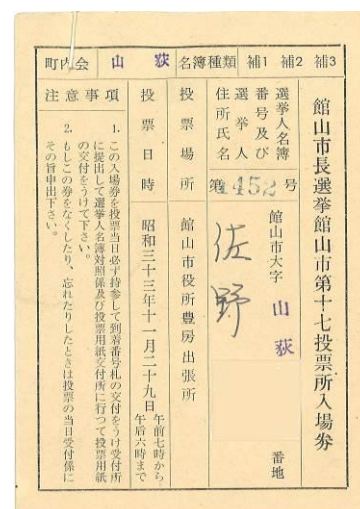 町内会 山荻 名簿種類 補1 補2 補3
館山市長選挙館山市第十七投票所入場券
選挙人名簿
番号及び
選挙人
住所氏名
第1452号
館山市大字 山荻 番地
佐野
投票場所 館山市役所豊房出張所
投票日時 昭和三十三年十一月二十九日 午前七時から
午后六時まで
注意事項
1. この入場券を投票当日必ず持参して到着番号札の交付をうけ受付所
に提出して選挙人名簿対照係及び投票用紙交付所に行つて投票用紙
の交付をうけて下さい。
2. もしこの券をなくしたり、忘れたりしたときは投票の当日受付係に
その旨申出下さい。